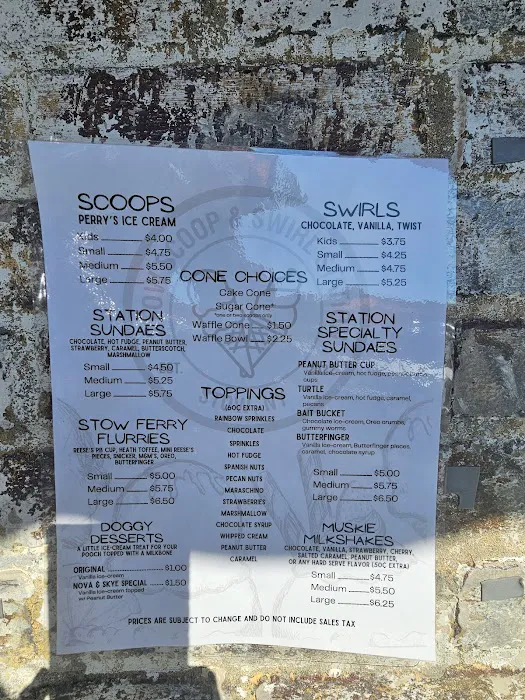 SCOOPS
PERRY'S ICE CREAM
Kids $4.00
Small $4.75
Medium $5.50
Large $5.75
SWIRLS
CHOCOLATE, VANILLA, TWIST
Kids $3.75
Small $4.25
Medium $4.75
Large $5.25
SCOOP & SWIRL
CONE CHOICES
Cake Cone
Sugar Cone*
*one or two scoops only
Waffle Cone $1.50
Waffle Bowl $2.25
STATION
SUNDAES
CHOCOLATE, HOT FUDGE, PEANUT BUTTER,
STRAWBERRY, CARAMEL, BUTTERSCOTCH,
MARSHMALLOW
Small $4.50
Medium $5.25
Large $5.75
STATION
SPECIALTY
SUNDAES
PEANUT BUTTER CUP
Vanilla ice-cream, hot fudge, peanut butter
cups
TURTLE
Vanilla ice-cream, hot fudge, caramel,
pecans
BAIT BUCKET
Chocolate ice-cream, Oreo crumble,
gummy worms
BUTTERFINGER
Vanilla ice-cream, Butterfinger pieces,
caramel, chocolate syrup
Small $5.00
Medium $5.75
Large $6.50
TOPPINGS
(60¢ EXTRA)
RAINBOW SPRINKLES
CHOCOLATE
SPRINKLES
HOT FUDGE
SPANISH NUTS
PECAN NUTS
MARASCHINO
STRAWBERRIES
MARSHMALLOW
CHOCOLATE SYRUP
WHIPPED CREAM
PEANUT BUTTER
CARAMEL
STOW FERRY
FLURRIES
REESE'S PB CUP, HEATH TOFFEE, MINI REESE'S
PIECES, SNICKER, M&M'S, OREO,
BUTTERFINGER
Small $5.00
Medium $5.75
Large $6.50
DOGGY
DESSERTS
A LITTLE ICE-CREAM TREAT FOR YOUR
POOCH TOPPED WITH A MILKBONE
ORIGINAL $1.00
Vanilla ice-cream
NOVA & SKYE SPECIAL $1.50
Vanilla ice-cream topped
w/ Peanut Butter
MUSKIE
MILKSHAKES
CHOCOLATE, VANILLA, STRAWBERRY, CHERRY,
SALTED CARAMEL, PEANUT BUTTER,
OR ANY HARD SERVE FLAVOR (50¢ EXTRA)
Small $4.75
Medium $5.50
Large $6.25
PRICES ARE SUBJECT TO CHANGE AND DO NOT INCLUDE SALES TAX